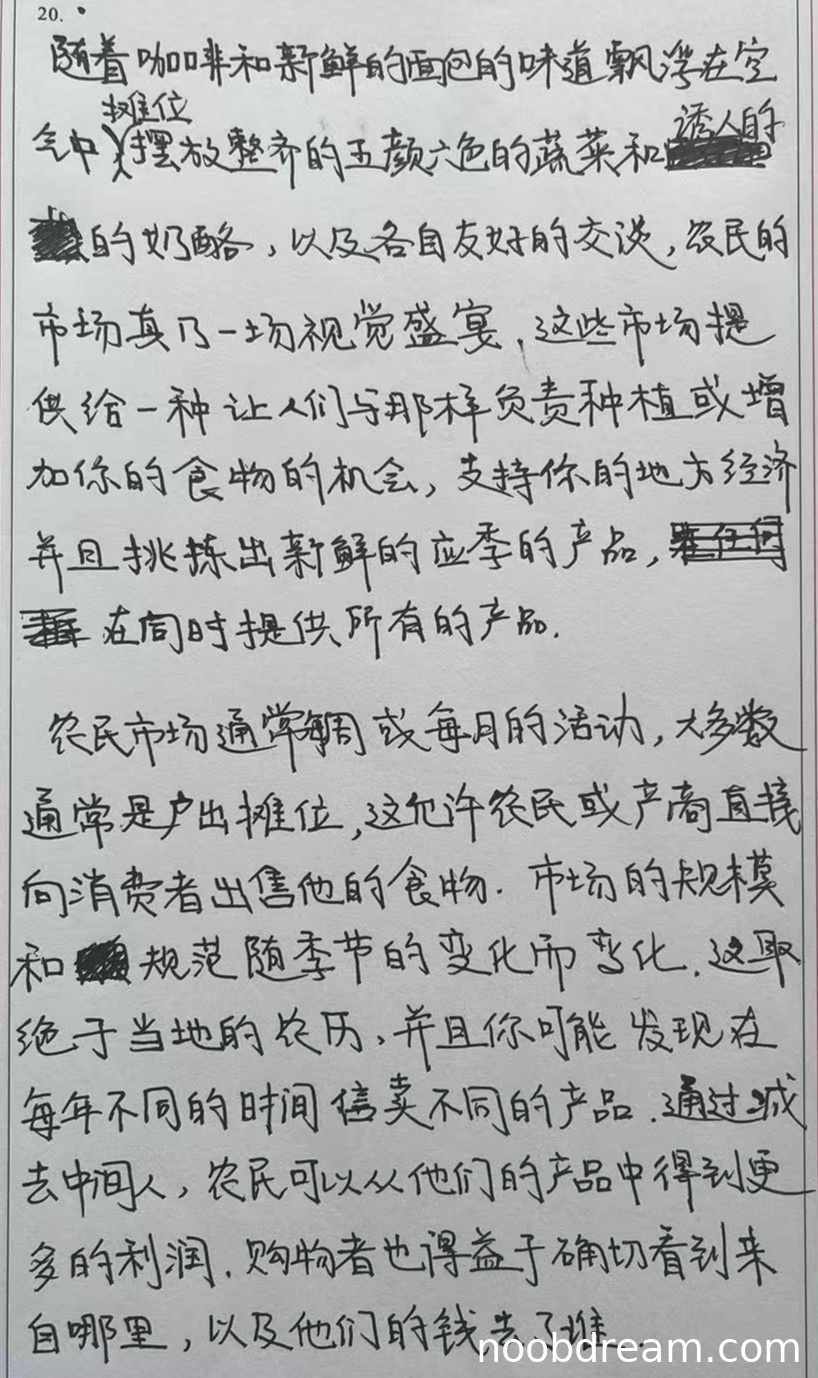 20.
随着咖啡和新鲜的面包的味道飘浮在空
气中,摊位摆放整齐的五颜六色的蔬菜和诱人的
的奶酪,以及各自友好的交谈,农民的
市场真乃一场视觉盛宴,这些市场提
供给一种让人们与那样负责种植或增
加你的食物的机会,支持你的地方经济
并且挑拣出新鲜的应季的产品,
在同时提供所有的产品.
农民市场通常每周或每月的活动,大多数
通常是户出摊位,这允许农民或产商直接
向消费者出售他的食物.市场的规模
和规范随季节的变化而变化.这取
绝于当地的农历,并且你可能发现在
每年不同的时间信卖不同的产品.通过减
去中间人,农民可以从他们的产品中得到更
多的利润.购物者也得益于确切看到来
自哪里,以及他们的钱去了谁.
noobdream.com